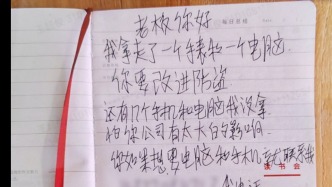 老板你好
我拿走了一个手表和一个电脑
你要改进防盗
还有几个手机和电脑我没拿
怕你公司有太大的影响
你如果想要电脑和手机 联系我
读书会